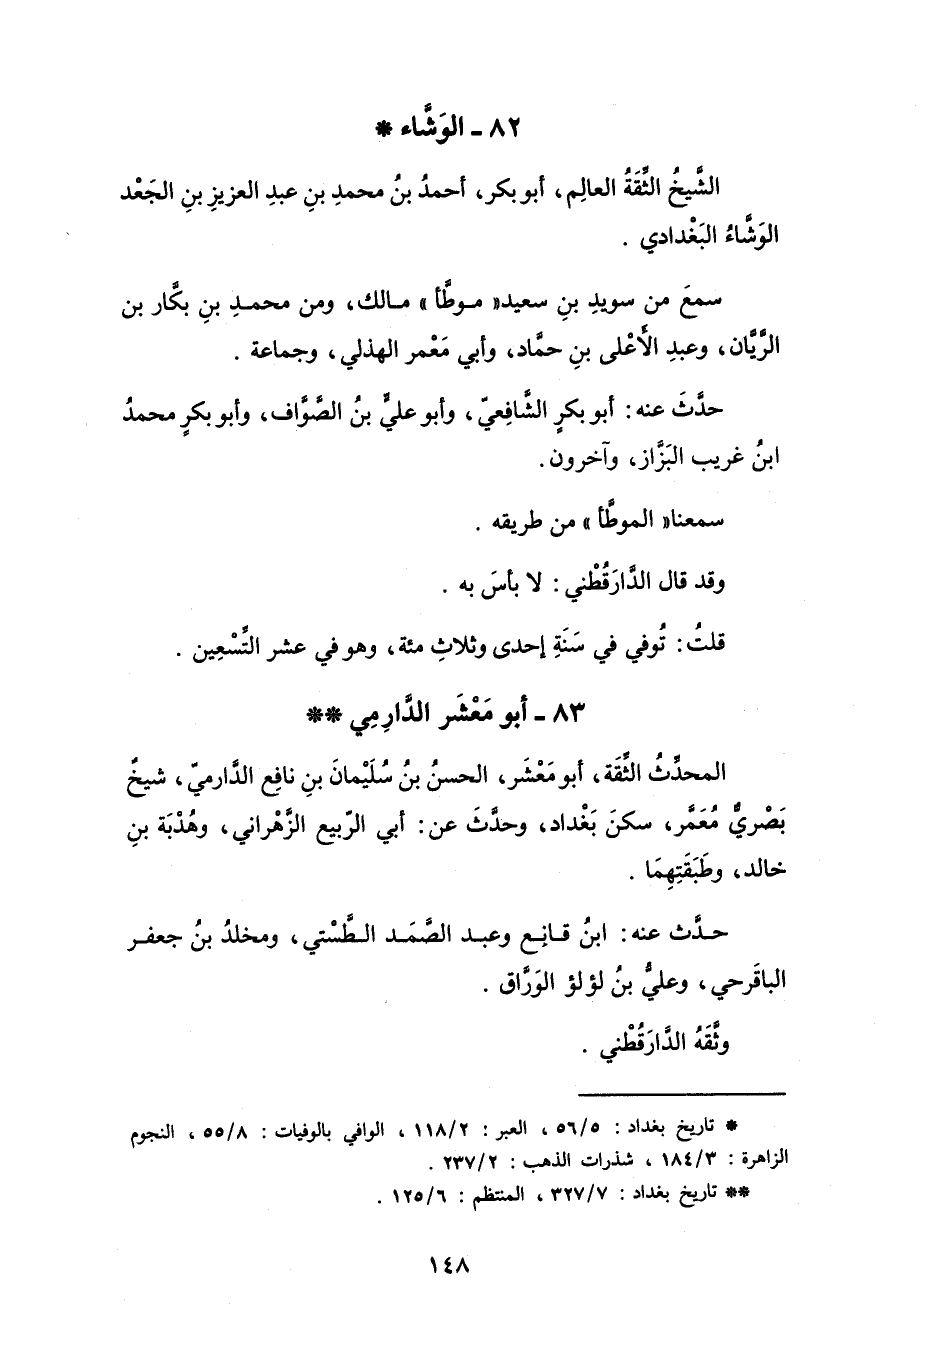 ٨٢ - الوَشَّاء *
الشَّيخُ الثِّقَةُ العالِم، أبو بكر، أحمدُ بنُ محمدِ بنِ عبدِ العزيزِ بنِ الجَعْد
الوَشَّاءُ البَغْدادي .
سمعَ من سويدِ بنِ سعيد« موطَّأ » مالك، ومن محمدِ بنِ بكَّار بن
الرَّيَّان، وعبدِ الأَعْلى بنِ حمَّاد، وأبي مَعْمر الهذلي، وجماعة .
حدَّثَ عنه: أبو بكرٍ الشَّافِعيّ، وأبو عليٍّ بنُ الصَّوَّاف، وأبو بكرٍ محمدُ
ابنُ غريب البَزَّاز، وآخرون.
سمعنا« الموطَّأ » من طريقه .
وقد قال الدَّارَقُطْني: لا بأسَ به .
قلتُ: تُوفي في سَنَةِ إحدى وثلاثِ مئة، وهو في عشر التِّسْعِين .
٨٣ - أبو مَعْشَر الدَّارِمِي **
المحدِّثُ الثِّقَة، أبو مَعْشَر، الحسنُ بنُ سُلَيْمانَ بنِ نافِع الدَّارميّ، شيخٌ
بَصْريٌّ مُعَمَّر، سكنَ بَغْداد، وحدَّثَ عن: أبي الرّبيع الزَّهْراني، وهُدْبَة بنِ
خالد، وطَبَقَتِهِمَا .
حدَّث عنه: ابنُ قانِع وعبد الصَّمَد الطَّسْتي، ومخلدُ بنُ جعفر
الباقَرحي، وعليُّ بنُ لؤلؤ الوَرَّاق .
وثَّقَهُ الدَّارَقُطْني .
* تاريخ بغداد : ٥٦/٥ ، العبر : ١١٨/٢ ، الوافي بالوفيات : ٥٥/٨ ، النجوم
الزاهرة : ١٨٤/٣ ، شذرات الذهب : ٢٣٧/٢ .
** تاريخ بغداد : ٣٢٧/٧ ، المنتظم : ١٢٥/٦ .
١٤٨